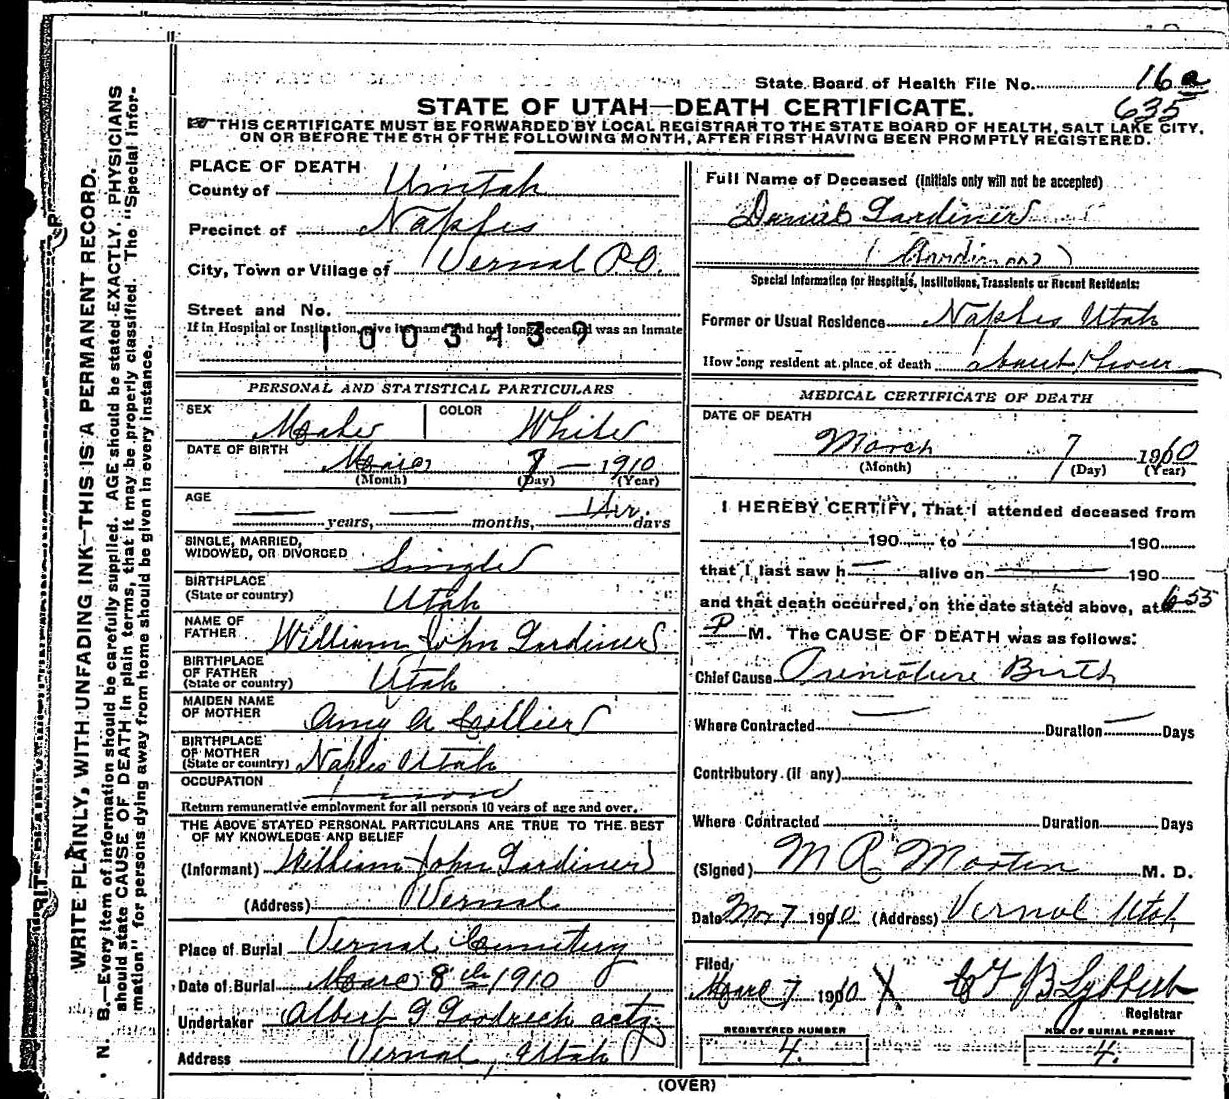 State Board of Health File No. 16a
635
STATE OF UTAH—DEATH CERTIFICATE.
THIS CERTIFICATE MUST BE FORWARDED BY LOCAL REGISTRAR TO THE STATE BOARD OF HEALTH, SALT LAKE CITY,
ON OR BEFORE THE 5TH OF THE FOLLOWING MONTH, AFTER FIRST HAVING BEEN PROMPTLY REGISTERED.
WRITE PLAINLY, WITH UNFADING INK—THIS IS A PERMANENT RECORD.
N. B.—Every item of information should be carefully supplied. AGE should be stated EXACTLY. PHYSICIANS
should state CAUSE OF DEATH in plain terms, that it may be properly classified. The "Special Infor-
mation" for persons dying away from home should be given in every instance.
PLACE OF DEATH
County of Uintah
Precinct of Naples
City, Town or Village of Vernal P.O.
Street and No.
If in Hospital or Institution, give its name and how long deceased was an Inmate
1003439
PERSONAL AND STATISTICAL PARTICULARS
SEX Male COLOR White
DATE OF BIRTH Marc 7 — 1910
(Month) (Day) (Year)
AGE years, months, 1 Hr. days
SINGLE, MARRIED,
WIDOWED, OR DIVORCED Single
BIRTHPLACE
(State or country) Utah
NAME OF
FATHER William John Gardiner
BIRTHPLACE
OF FATHER
(State or country) Utah
MAIDEN NAME
OF MOTHER Amy A Collier
BIRTHPLACE
OF MOTHER
(State or country) Naples Utah
OCCUPATION
Return remunerative employment for all persons 10 years of age and over.
THE ABOVE STATED PERSONAL PARTICULARS ARE TRUE TO THE BEST
OF MY KNOWLEDGE AND BELIEF
(Informant) William John Gardiner
(Address) Vernal
Place of Burial Vernal Cemetery
Date of Burial Marc 8th 1910
Undertaker Albert G Goodrich actg
Address Vernal, Utah
Full Name of Deceased (Initials only will not be accepted)
Daniel Gardiner
(Gardiner)
Special Information for Hospitals, Institutions, Transients or Recent Residents:
Former or Usual Residence Naples Utah
How long resident at place of death about 1 hour
MEDICAL CERTIFICATE OF DEATH
DATE OF DEATH
March 7 1910
(Month) (Day) (Year)
I HEREBY CERTIFY, That I attended deceased from
190 to 190
that I last saw h alive on 190
and that death occurred, on the date stated above, at 6-55
P M. The CAUSE OF DEATH was as follows:
Chief Cause Primature Birth
Where Contracted Duration Days
Contributory (if any)
Where Contracted Duration Days
(Signed) M. D.
Date Mar 7 1910 (Address) Vernal Utah
Filed,
Marc 7 1910 J B Lybbert
Registrar
REGISTERED NUMBER
4.
NO. OF BURIAL PERMIT
4.
(OVER)